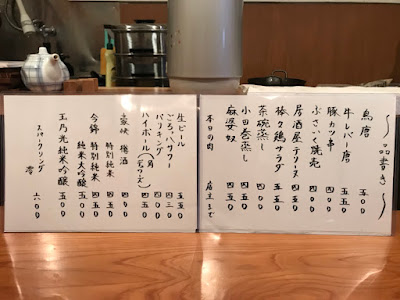 〜品書き〜
鳥唐 五〇〇
牛レバー唐 五五〇
豚カツ串 四〇〇
ぶさいく焼売 四〇〇
居酒屋テリーヌ 四五〇
棒々鶏サラダ 五〇〇
茶碗蒸し 四〇〇
小田巻蒸し 四五〇
麻婆奴 四五〇
本日の肉 店主まで
生ビール 五五〇
ごちっハワー 四三〇
バリキング 四〇〇
ハイボール 四五〇
豪快 樽酒 四〇〇
今錦 特別純米 四五〇
純米大吟醸 五五〇
玉乃光純米吟醸 五〇〇
スパークリング 杏 六〇〇